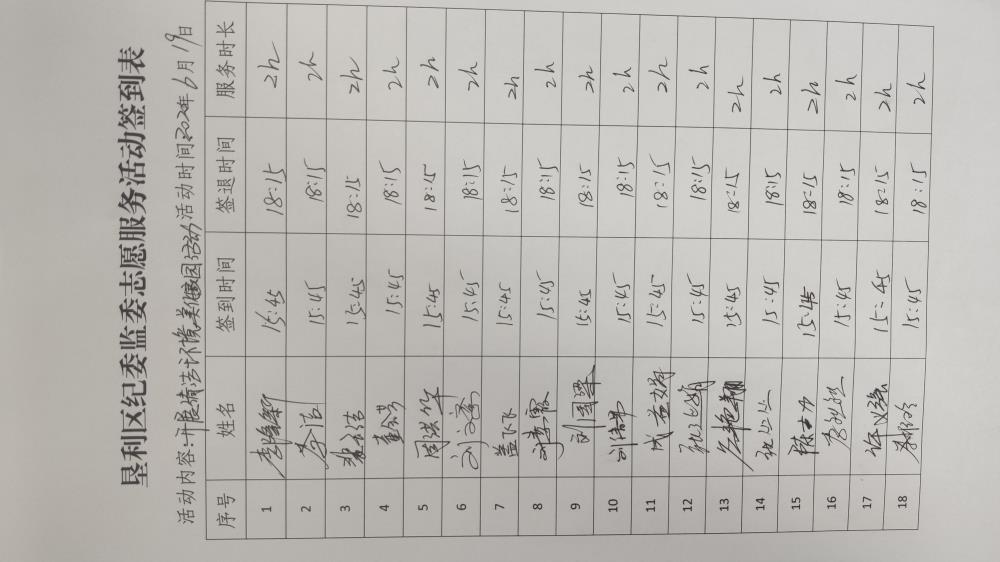 垦利区纪委监委志愿服务活动签到表
活动内容:开展清洁环境,美化家园活动 活动时间:2024年6月19日
序号 姓名 签到时间 签退时间 服务时长
1 15:45 18:15 2h
2 李洁 15:45 18:15 2h
3 15:45 18:15 2h
4 15:45 18:15 2h
5 15:45 18:15 2h
6 15:45 18:15 2h
7 盖飞飞 15:45 18:15 2h
8 15:45 18:15 2h
9 15:45 18:15 2h
10 15:45 18:15 2h
11 15:45 18:15 2h
12 15:45 18:15 2h
13 15:45 18:15 2h
14 15:45 18:15 2h
15 15:45 18:15 2h
16 15:45 18:15 2h
17 许义强 15:45 18:15 2h
18 15:45 18:15 2h